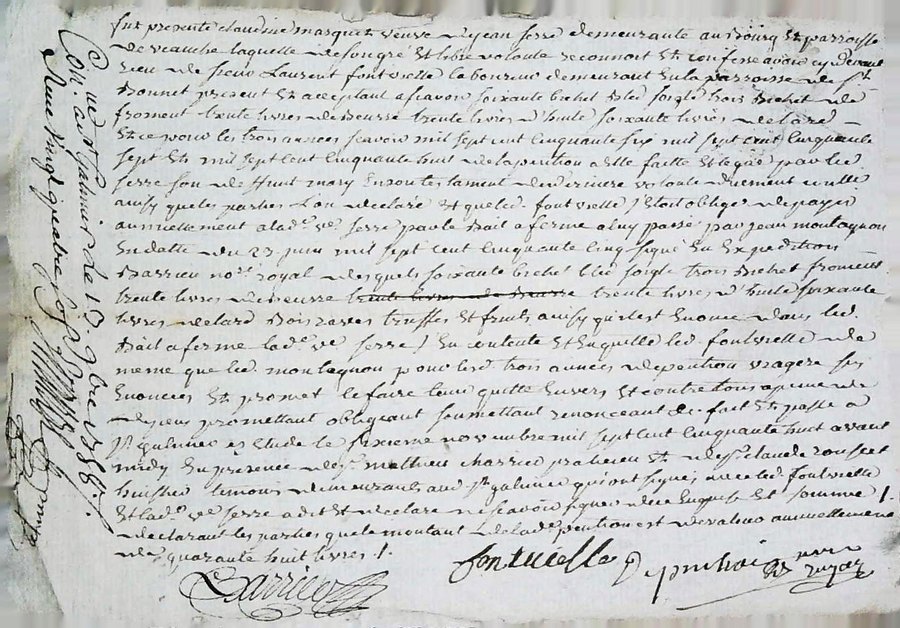 fut presente claudine masquet veuve de jean serre demeurante au Bourg et parroisse
de laquelle de son gré et libre volonte reconnoit et confesse avoir cy devant
reçu de sieur Laurent fontvielle le bonrieu demeurant en la parroisse de st
Bonnet present et acceptant a scavoir soixante bichet bled soigle trois bichet de
froment trente livres de beurre trente livres d'huile soixante livres de lard
et ce pour les trois années scavoir mil sept cent cinquante six mil sept cent cinquante
sept et mil sept cent cinquante huit de la pention a elle faitte et leguée par led
serre son deffunt mary en son testament de derniere volonte duement
ainsy que les parties l'on declaré et que led. fontvielle s'etoit obliger de payer
annuellement a lad. ve serre par le Bail a ferme a luy passé par jean montagnon
en datte du 23 juin mil sept cent cinquante cinq signé en expedition
Barrieu nore royal desquels soixante bichet bled soigle trois Bichet froment
trente livres de beurre trente livres de Beurre trente livres d'huile soixante
livres de lard Bois raves truffes et fruits ainsy qu'il est enoncé dans led.
Bail a ferme lad. ve serre s'en contente et en quitte led. fontvielle de
meme que led. montagnon pour lesd. trois années de pention viagere sus
enoncées et promet le faire tenir quitte envers et contre tous a peine de
promettant obligeant soumettant renonceant &c. fait et passe a
st galmier etude le sixieme novembre mil sept cent cinquante huit avant
midy en presence de sr. mathieu charrier praticien et de sr claude rousset
huissier temoins demeurants aud st galmier qui ont signés avec led. fontvielle
et lad. ve serre a dit et declare ne scavoir signer de ce enquise et sommée /.
declarant les parties que le montant de lad. pention est de valeur annuellement
de quarante huit livres /.
Barrieu
fontvielle
Con. a st Galmier le 13 9bre 1758.
Reçu vingt quatre sols